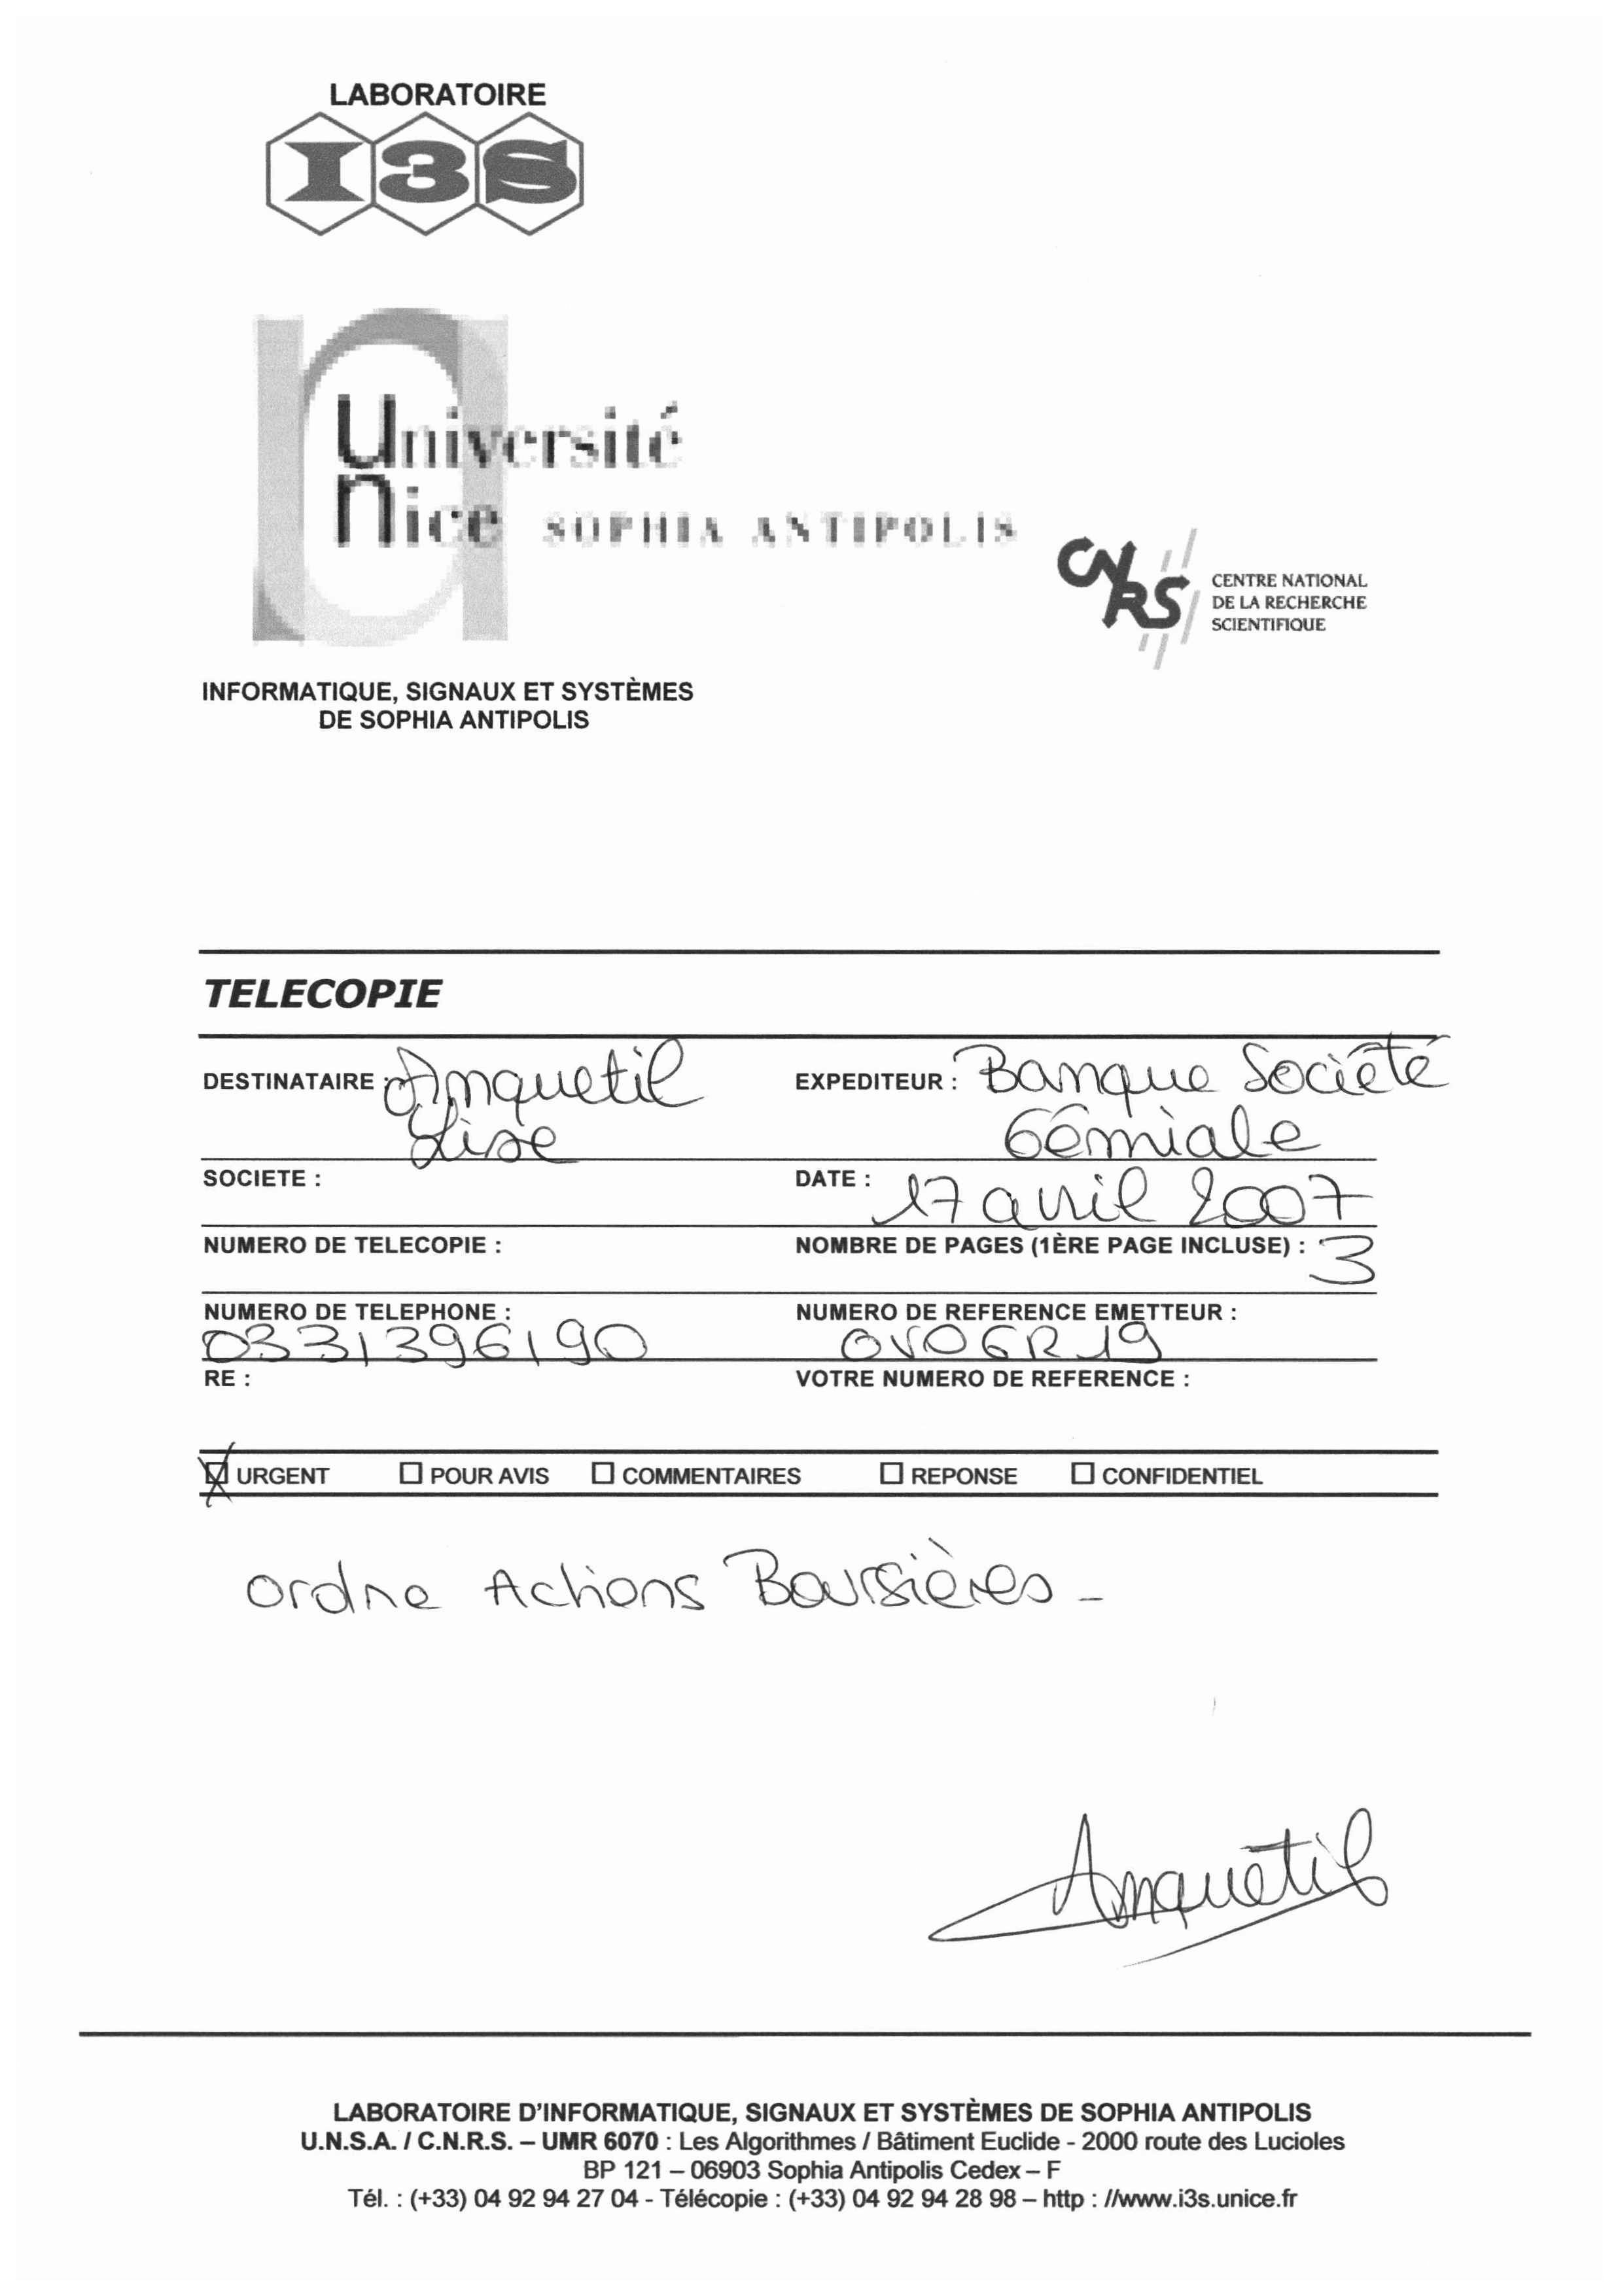 LABORATOIRE
I3S
Université
Nice SOPHIA ANTIPOLIS
CNRS
CENTRE NATIONAL
DE LA RECHERCHE
SCIENTIFIQUE
INFORMATIQUE, SIGNAUX ET SYSTÈMES
DE SOPHIA ANTIPOLIS
TELECOPIE
DESTINATAIRE : Anquetil EXPEDITEUR : Banque Société
Lise Géniale
SOCIETE : DATE : 17 avril 2007
NUMERO DE TELECOPIE : NOMBRE DE PAGES (1ÈRE PAGE INCLUSE) : 3
NUMERO DE TELEPHONE : NUMERO DE REFERENCE EMETTEUR :
0331396190 OVOGR19
RE : VOTRE NUMERO DE REFERENCE :
URGENT POUR AVIS COMMENTAIRES REPONSE CONFIDENTIEL
Ordre Actions Boursières -
Anquetil
LABORATOIRE D'INFORMATIQUE, SIGNAUX ET SYSTÈMES DE SOPHIA ANTIPOLIS
U.N.S.A. / C.N.R.S. – UMR 6070 : Les Algorithmes / Bâtiment Euclide - 2000 route des Lucioles
BP 121 – 06903 Sophia Antipolis Cedex – F
Tél. : (+33) 04 92 94 27 04 - Télécopie : (+33) 04 92 94 28 98 – http : //www.i3s.unice.fr